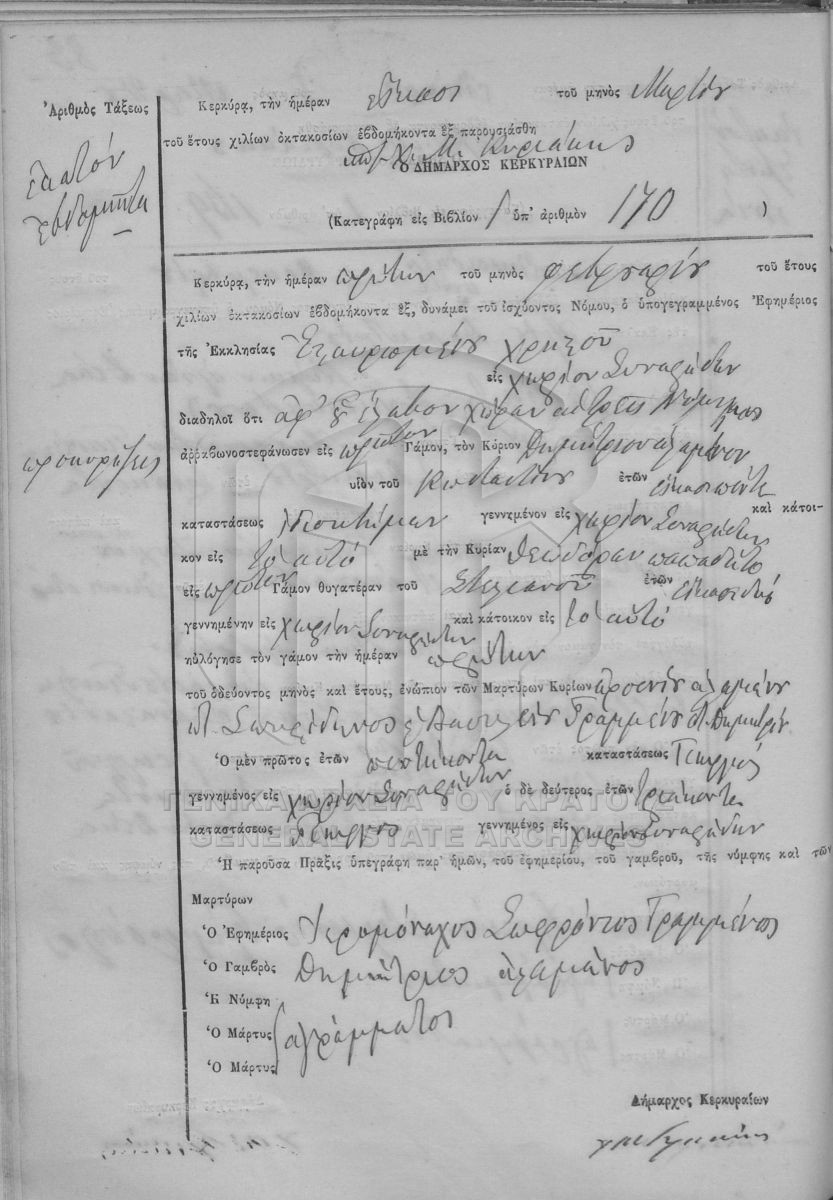 Ἀριθμὸς Τάξεως
ἑκατόν
ἑβδομῆντα
Κερκύρᾳ, τὴν ἡμέραν εἴκοσι τοῦ μηνὸς Μαρτίου
τοῦ ἔτους χιλίων ὀκτακοσίων ἑβδομήκοντα ἓξ παρουσιάσθη
Ὁ ΔΗΜΑΡΧΟΣ ΚΕΡΚΥΡΑΙΩΝ
(Κατεγράφη εἰς Βιβλίον 1 ὑπ' ἀριθμὸν 170 )
Κερκύρᾳ, τὴν ἡμέραν πρώτην τοῦ μηνὸς φεβρουαρίου τοῦ ἔτους
χιλίων ὀκτακοσίων ἑβδομήκοντα ἓξ, δυνάμει τοῦ ἰσχύοντος Νόμου, ὁ ὑπογεγραμμένος Ἐφημέριος
τῆς Ἐκκλησίας Ἐσταυρωμένου Χριστοῦ
εἰς χωρίον Συναράδων
διαδηλοῖ ὅτι ἀφ' οὗ ἔλαβον χώραν αἱ τρεῖς νόμιμαι
προκηρύξεις
ἀρραβωνοστεφάνωσεν εἰς πρῶτον Γάμον, τὸν Κύριον Δημήτριον ἀλαμάνον
υἱὸν τοῦ Κωσταντίνου ἐτῶν εἰκοσιπέντε
καταστάσεως κτηματίαν γεννημένον εἰς χωρίον Συναράδων καὶ κάτοι-
κον εἰς τὸ αὐτό μὲ τὴν Κυρίαν Θεοδώραν παπαδάτο
εἰς πρῶτον Γάμον θυγατέραν τοῦ Στεριανοῦ ἐτῶν
γεννημένην εἰς χωρίον Συναράδων καὶ κάτοικον εἰς τὸ αὐτό
ηὐλόγησε τὸν γάμον τὴν ἡμέραν πρώτην
τοῦ ὁδεύοντος μηνὸς καὶ ἔτους, ἐνώπιον τῶν Μαρτύρων Κυρίων ἀρσενίου ἀλαμάνου
π. Σπυρίδωνος Βασιλείου Γραμμένου π. Δημητρίου
Ὁ μὲν πρῶτος ἐτῶν πεντήκοντα καταστάσεως Γεωργός
γεννημένος εἰς χωρίον Συναράδων ὁ δὲ δεύτερος ἐτῶν τριάκοντα
καταστάσεως Γεωργός γεννημένος εἰς χωρίον Συναράδων
ΓΕΝΙΚΑ ΑΡΧΕΙΑ ΤΟΥ ΚΡΑΤΟΥΣ
GENERAL STATE ARCHIVES
Ἡ παροῦσα Πρᾶξις ὑπεγράφη παρ' ἡμῶν, τοῦ ἐφημερίου, τοῦ γαμβροῦ, τῆς νύμφης καὶ τῶν
Μαρτύρων
Ὁ Ἐφημέριος Ἱερομόναχος Σωφρόνιος Γραμμένος
Ὁ Γαμβρὸς Δημήτριος ἀλαμάνος
Ἡ Νύμφη
Ὁ Μάρτυς ἀγράμματοι
Ὁ Μάρτυς
Δήμαρχος Κερκυραίων